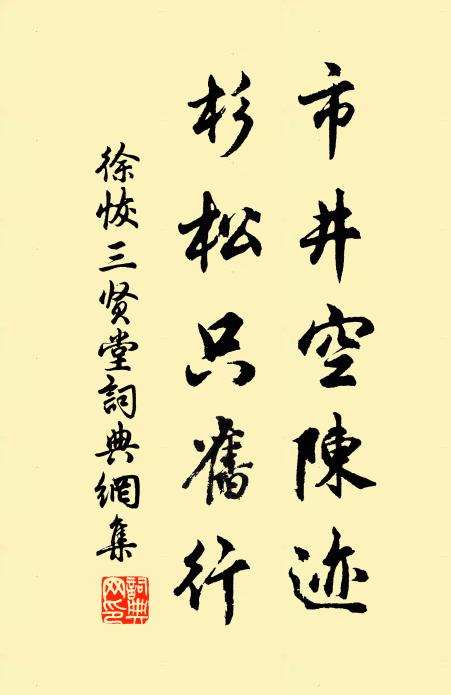 市井空陳迹
杉松只舊行
徐恢三贤堂詞典網集
詞典网印